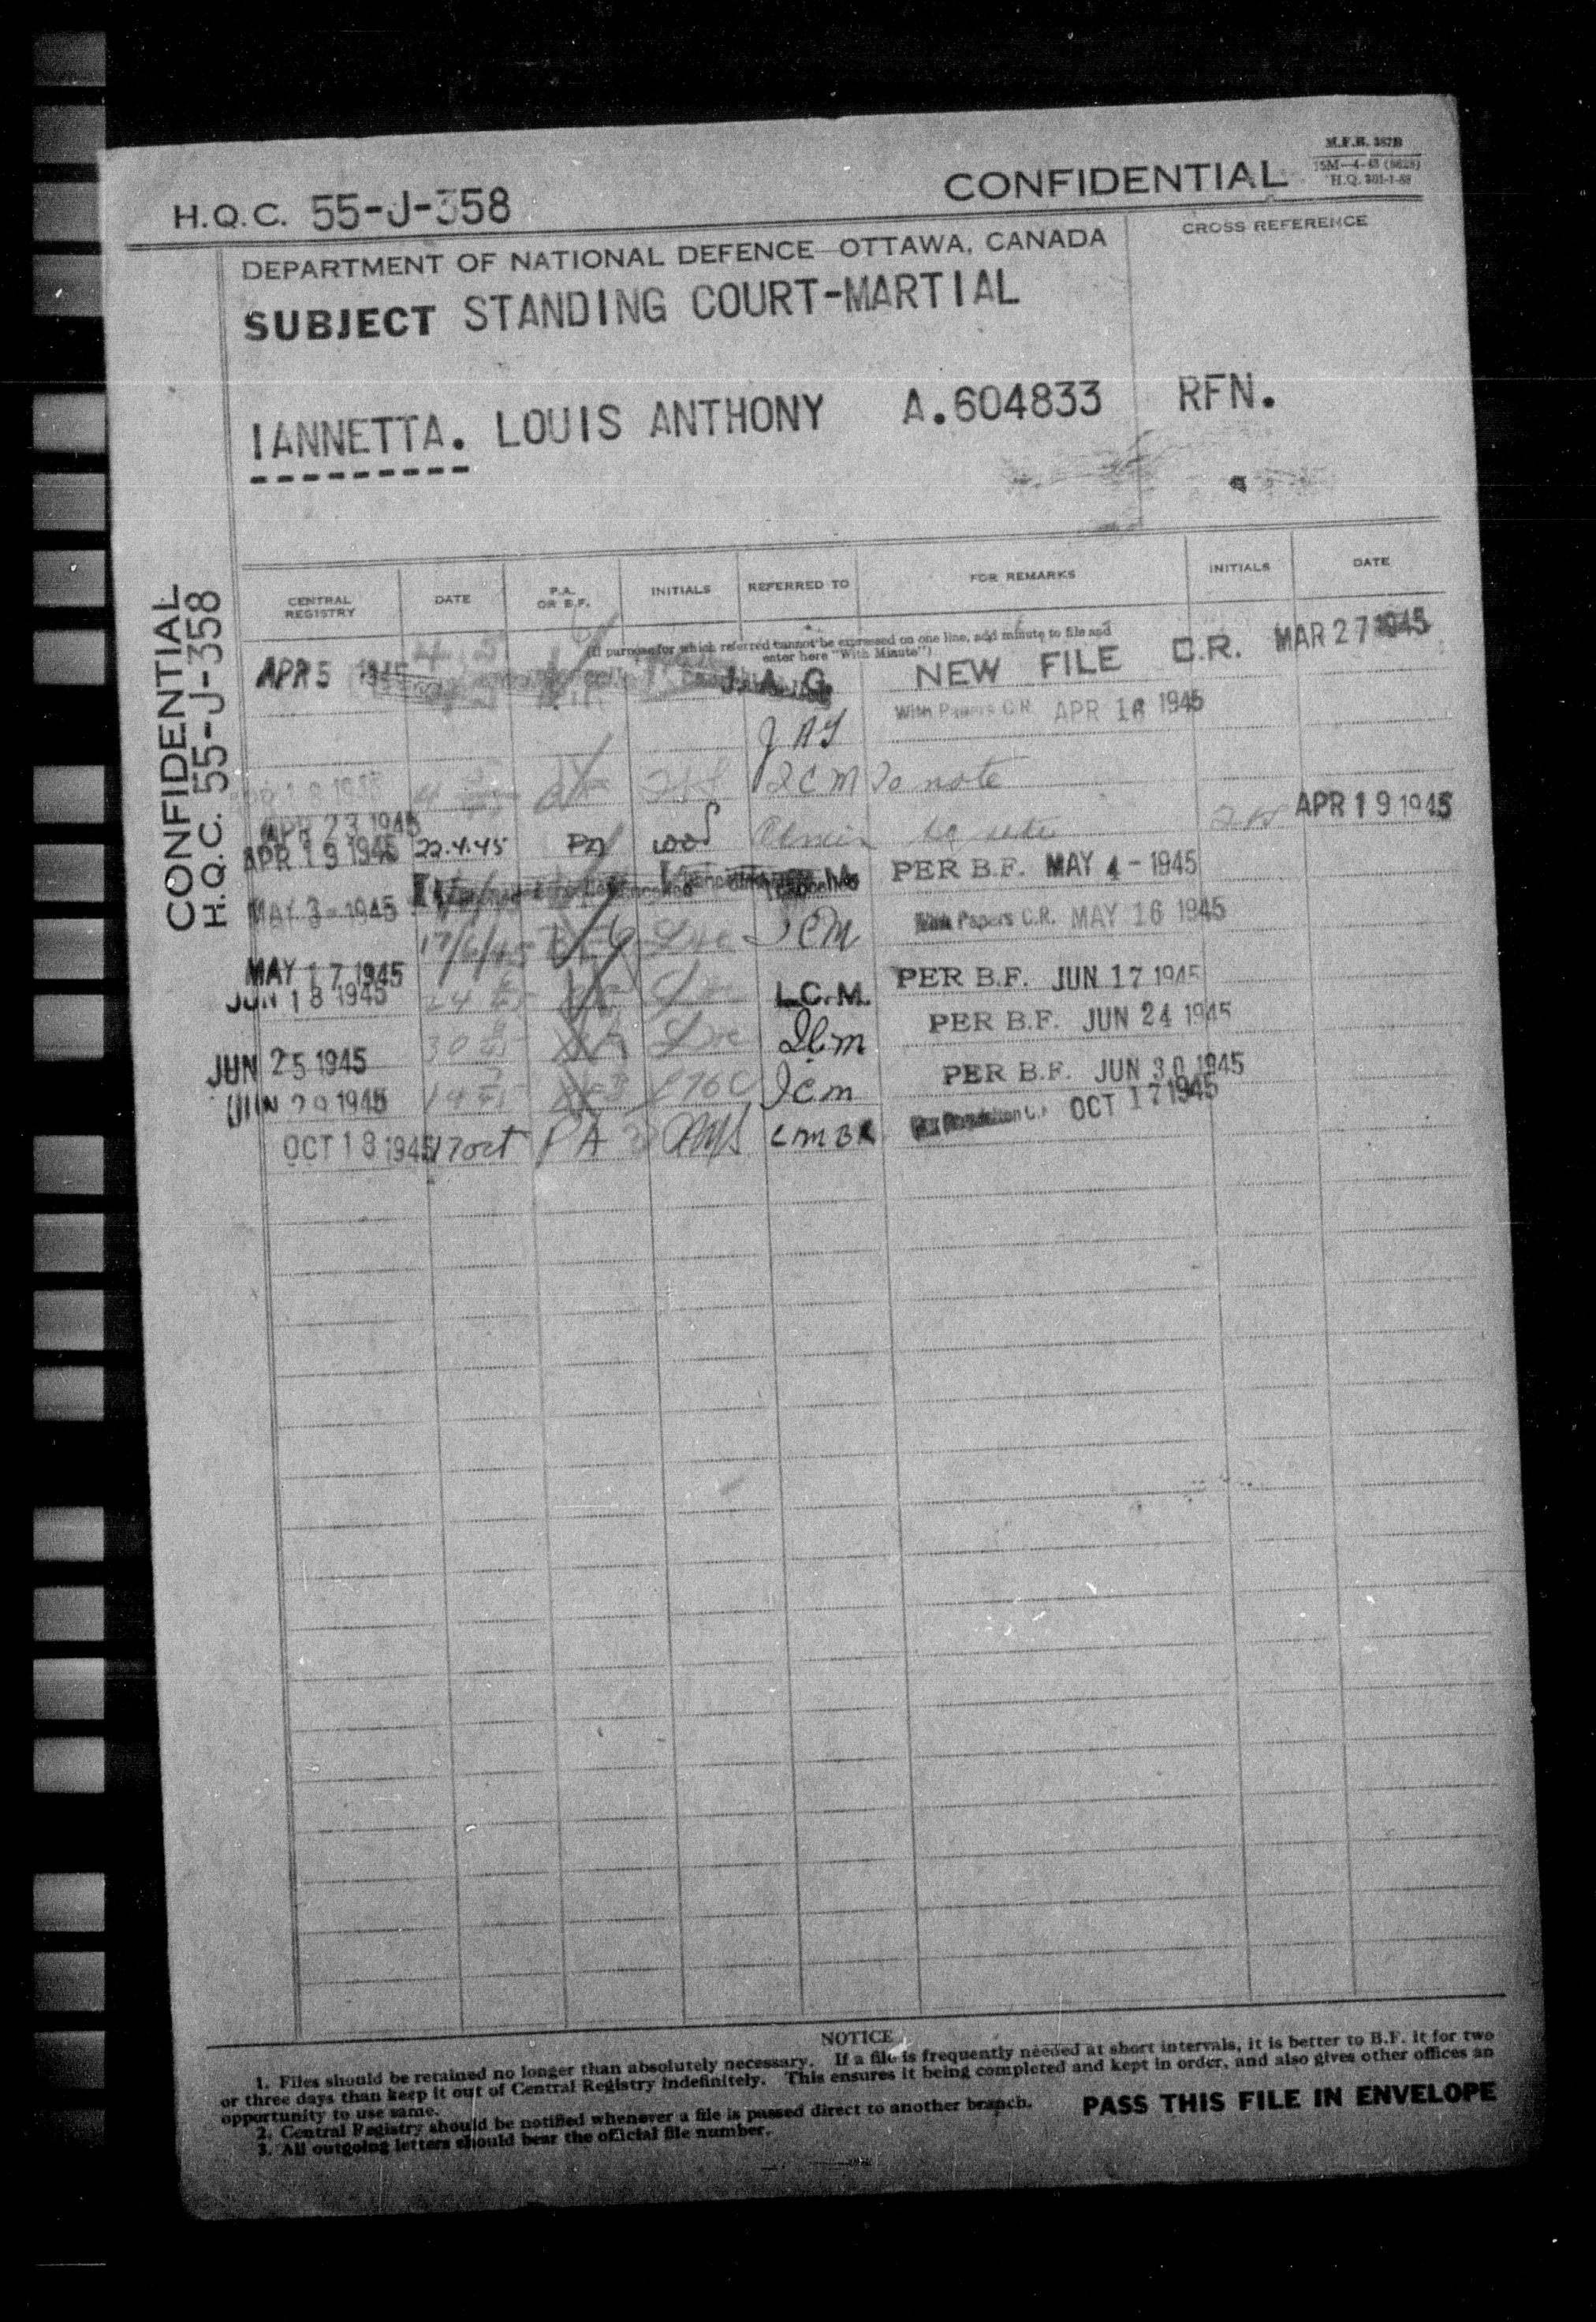 M.F.B. 387B
H.Q.C. 55-J-358 CONFIDENTIAL
DEPARTMENT OF NATIONAL DEFENCE—OTTAWA, CANADA
CROSS REFERENCE
SUBJECT STANDING COURT-MARTIAL
IANNETTA. LOUIS ANTHONY A.604833 RFN.
CONFIDENTIAL
H.Q.C. 55-J-358
CENTRAL REGISTRY DATE P.A. OR B.F. INITIALS REFERRED TO FOR REMARKS INITIALS DATE
(If purpose for which referred cannot be expressed on one line, add minute to file and
enter here "With Minute")
APR 5 1945 J.A.G. NEW FILE C.R. MAR 27 1945
With Papers C.R. APR 16 1945
JAG
to note
APR 23 1945
APR 19 1945 22.4.45 PA APR 19 1945
PER B.F. MAY 4 - 1945
MAY 3 - 1945
17/6/45 With Papers C.R. MAY 16 1945
MAY 17 1945
JUN 18 1945 L.C.M. PER B.F. JUN 17 1945
PER B.F. JUN 24 1945
JUN 25 1945
PER B.F. JUN 30 1945
JUN 29 1945
OCT 18 1945 17 Oct PA OCT 17 1945
NOTICE
1. Files should be retained no longer than absolutely necessary. If a file is frequently needed at short intervals, it is better to B.F. it for two
or three days than keep it out of Central Registry indefinitely. This ensures it being completed and kept in order, and also gives other offices an
opportunity to use same.
2. Central Registry should be notified whenever a file is passed direct to another branch.
3. All outgoing letters should bear the official file number.
PASS THIS FILE IN ENVELOPE